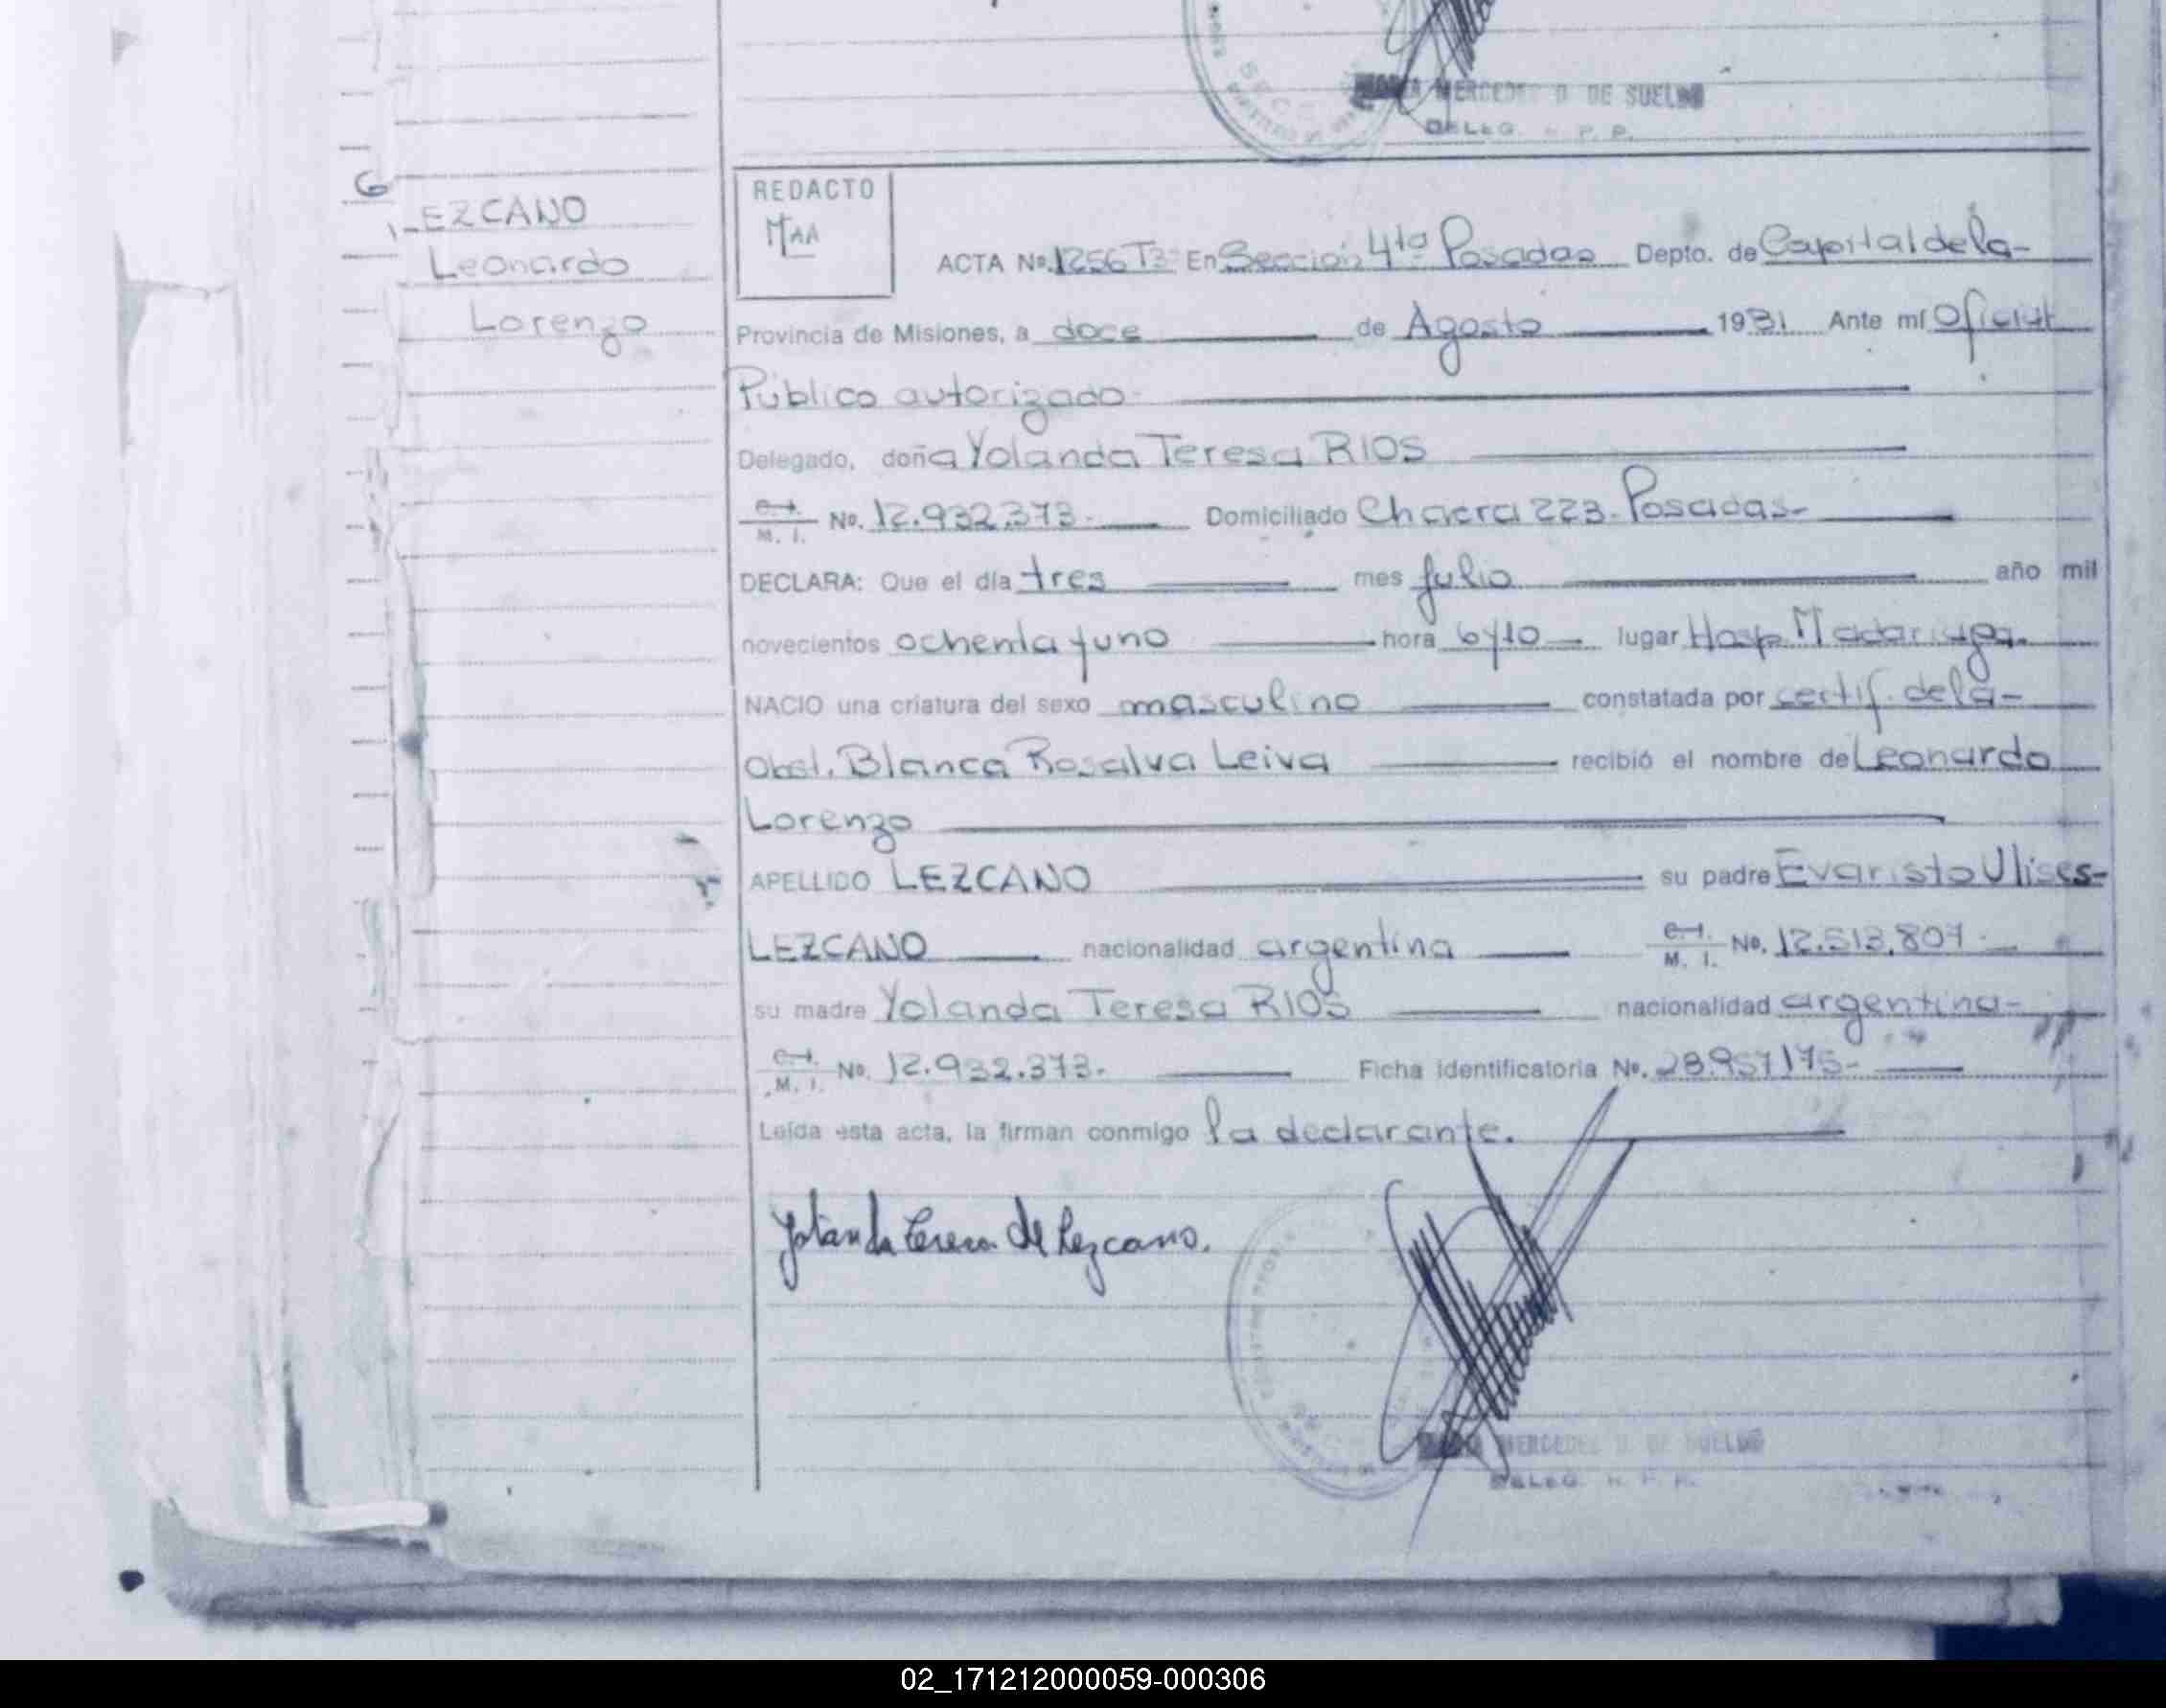 MERCEDES D. DE SUELDO
DELEG. R. P. P.
6
LEZCANO
Leonardo
Lorenzo
REDACTO
MAA
ACTA No. 1256 T3- En Sección 4ta Posadas Depto. de Capital de la-
Provincia de Misiones, a doce de Agosto 1981 Ante mí Oficial
Público autorizado-
Delegado, doña Yolanda Teresa RIOS
C.I. M. I. No. 12.932.373.- Domiciliado Chacra 223. Posadas-
DECLARA: Que el día tres mes julio año mil
novecientos ochenta y uno hora 6y10 lugar Hosp. Madariaga.
NACIO una criatura del sexo masculino constatada por certif. de la-
Obst. Blanca Rosalva Leiva recibió el nombre de Leonardo
Lorenzo
APELLIDO LEZCANO su padre Evaristo Ulises-
LEZCANO nacionalidad argentina C.I. M. I. No.
su madre Yolanda Teresa RIOS nacionalidad argentina-
C.I. M. I. No. 12.932.373. Ficha identificatoria No.
Leída esta acta, la firman conmigo la declarante.
Yolanda Teresa de Lezcano.
MERCEDES D. DE SUELDO
DELEG. R. P. P.
02_171212000059-000306